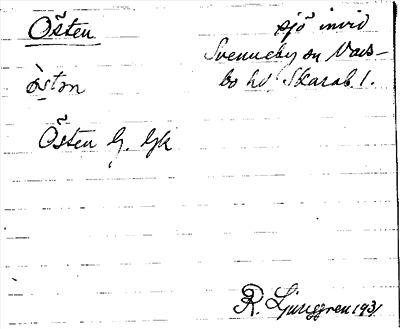 Östen
sjö invid
Svenneby sn Vads-
bo hd Skarab l.
östən
Östen G. Gk
R. Ljunggren 1931